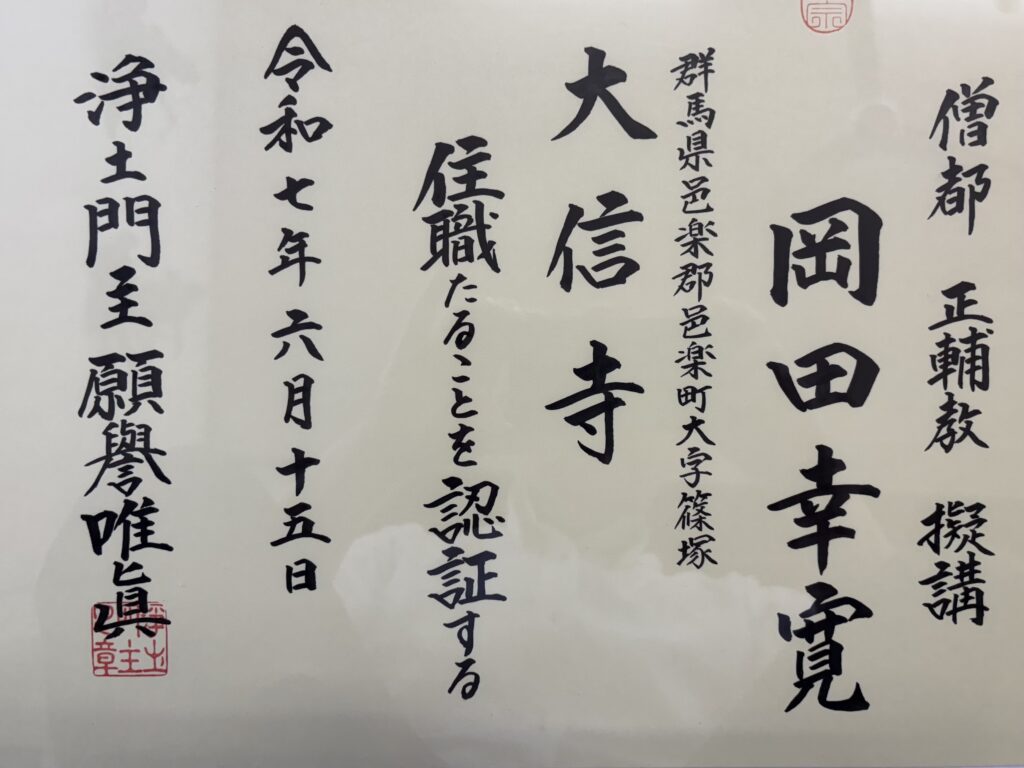 僧都　正輔教　擬講
岡田幸寛
群馬県邑楽郡邑楽町大字篠塚
大信寺
住職たることを認証する
令和七年六月十五日
浄土門主願譽唯眞